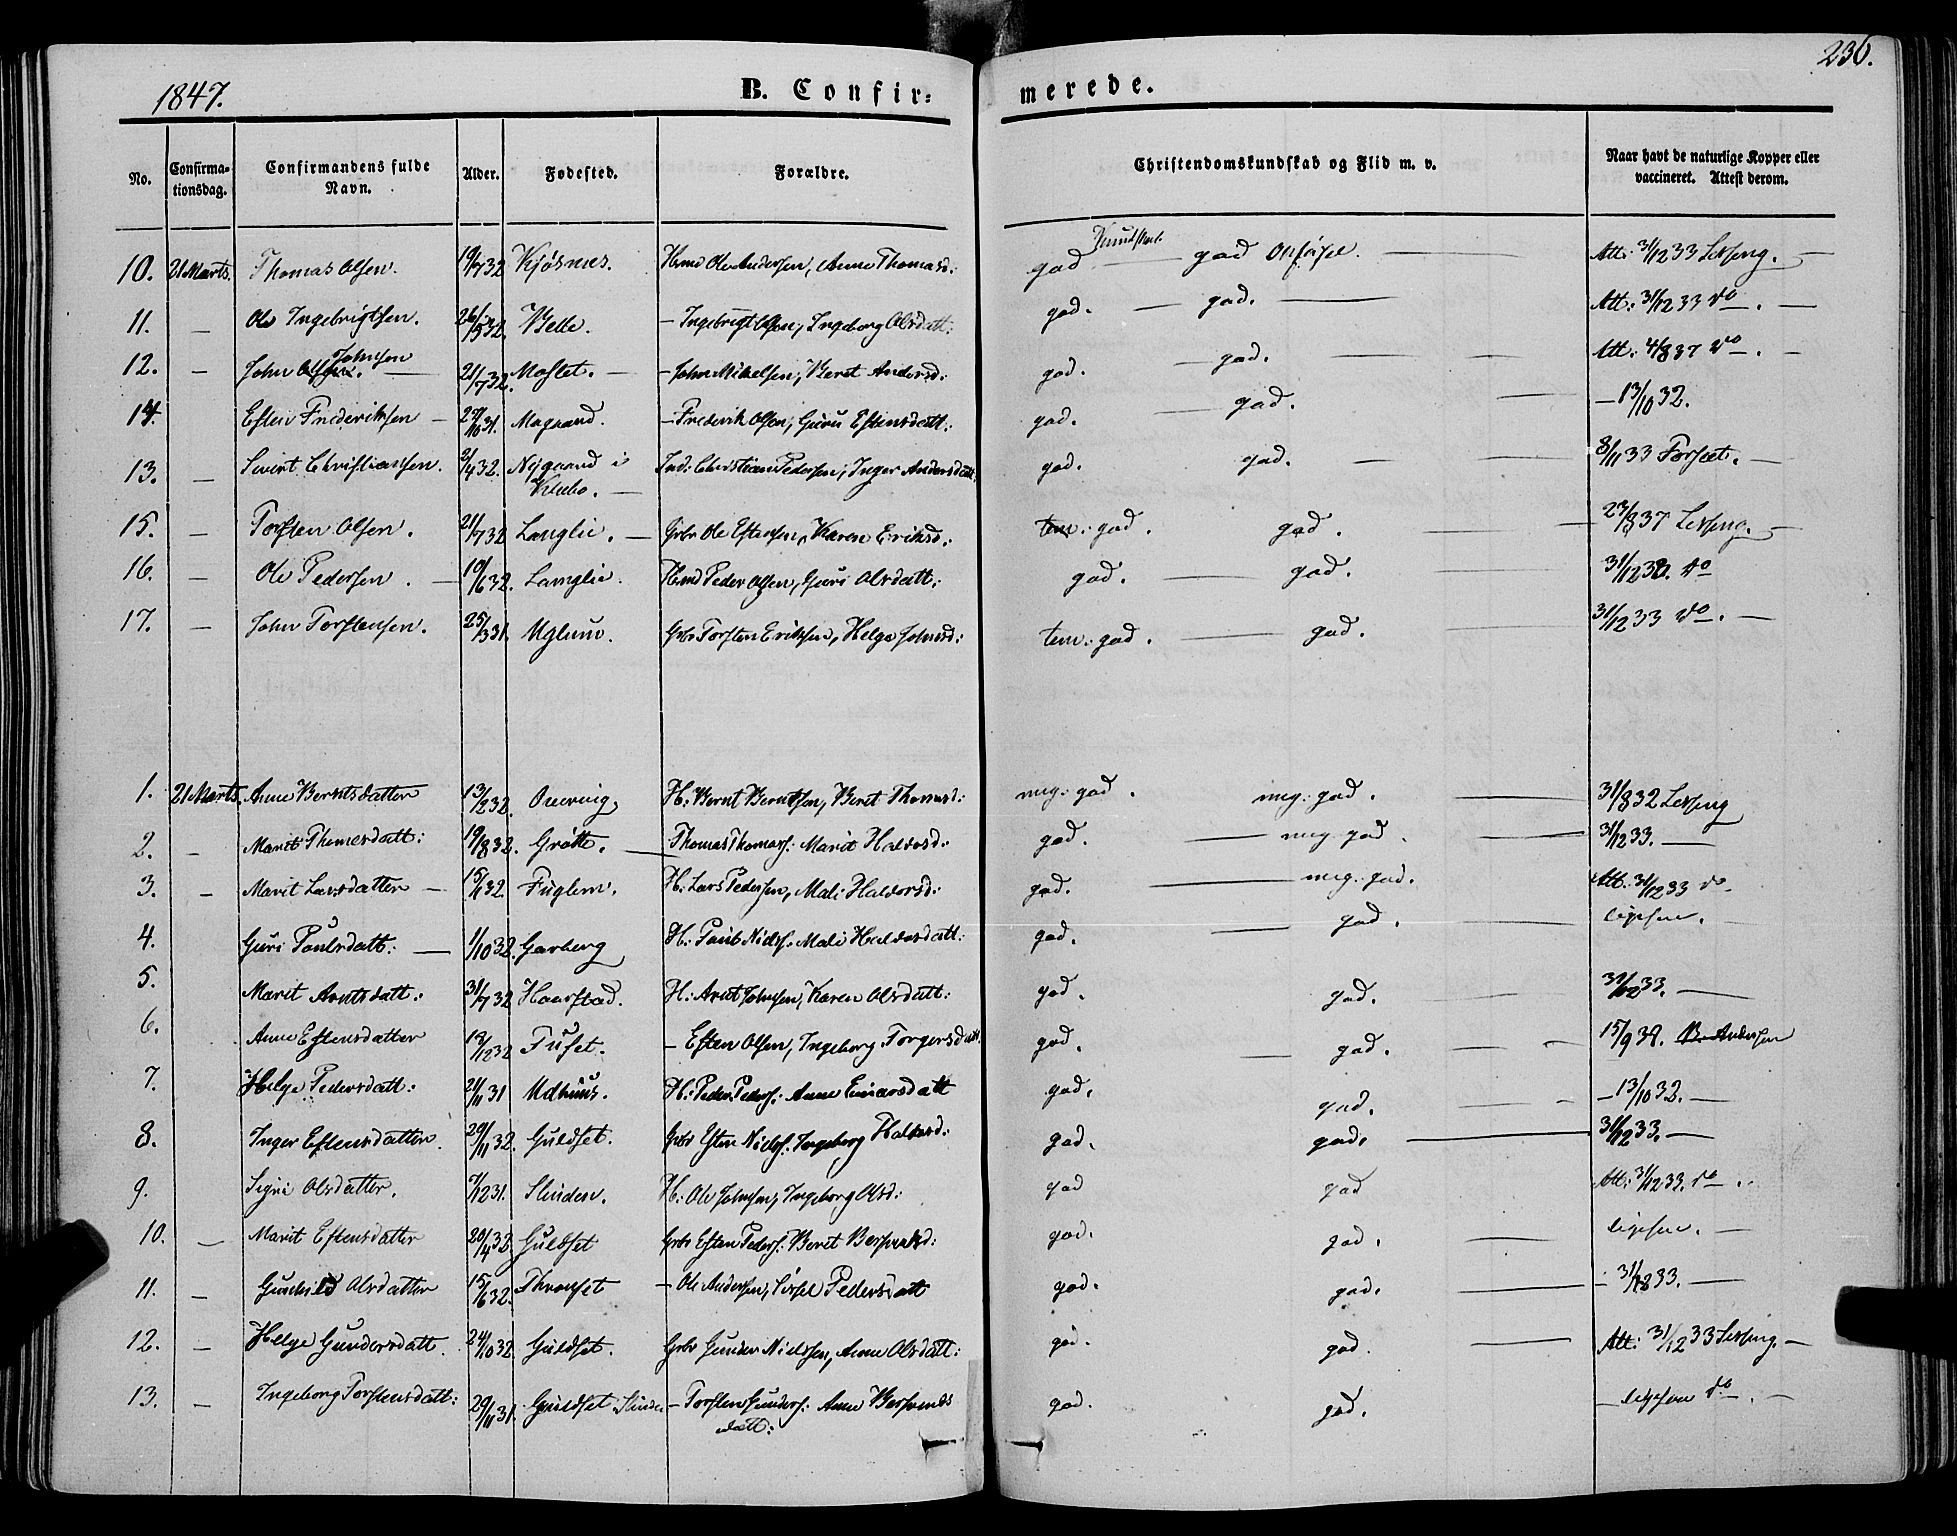 1847.
B. Confir=
merede.
236.
No. Confirma-tionsdag. Confirmandens fulde Navn. Alder. Fødested. Forældre. Christendomskundskab og Flid m. v. Naar havt de naturlige Kopper eller vaccineret. Attest derom.
10. 21 Marts. Thomas Olsen. 19/7 32 Kjøsnes. Hmd Ole Andersen, Anne Thomasd: god Kundskab — god Opførsel. — Att: 31/12 33 Lessing. —
11. — Ole Ingebrigtsen. 26/5 32. Velle. — Ingebrigt Olsen, Ingeborg Olsdatt: god. — god. — Att: 31/12 33 do —. —
12. — John Olsen. Johnsen — 21/7 32. Mostet. — — John Mikelsen, Beret Andersd: god. — god. — Att: 4/8 37 do —. —
14. Esten Frederiksen — 27/10 31. Mogaard. — Frederik Olsen, Guru Estensdatt: god. — god. — — 13/10 32.
13. — Sivert Christiansen. 2/4 32. Nygaard i Klæbo. — Ind: Christian Pedersen, Inger Andersdatt. god. god. — — 8/11 33 Forset. —
15. — Torsten Olsen. 21/7 32 Langlie. — Grbr Ole Estensen, Karen Eriksd: tem: god. god. — 23/8 37 Lessing. —
16. — Ole Pedersen. — 19/6 32. Langlie. Hmd Peder Olsen, Guri Olsdatt: god. — god. — 31/12 38. do
17. — John Torstensen. 25/3 31. Uglum. Grbr Torsten Eriksen, Helge Johnsd: tem: god. — god. — 31/12 33 do —. —
1. 21 Marts. Anne Berntsdatter 13/2 32. Overvig H: Bernt Berntsen, Beret Thomasd: meg: god. meg: god. — 31/8 32 Lessing
2. — Marit Thomesdatt: 19/8 32. Grøtte. — Thomas Thomas: Marit Haldosd: god. — meg. god. — 31/12 33. —
3. — Marit Larsdatter — 15/1 32. Fuglem. H: Lars Pedersen, Mali Haldorsd: god. — meg. god. Att: 31/12 33 do.
4. Guri Paulsdatt: — 1/10 32. Garberg H: Paul Niels: Mali Haldosdatt: god. — god. — ligesom. —
5. Marit Arntsdatt: 31/7 32 Haarstad. H: Arnt Johnsen, Karen Olsdatt: god. god. — 31/12 33. —
6. Anne Estensdatter 19/12 32 Tuset. — Esten Olsen, Ingeborg Torgersdatt. god. — god. — - 15/9 38. Br Andersen
7. Helge Pedersdatt: 21/11 31 Udhuus. H: Peder Peders: Anne Einarsdatt god. god. — - — 13/10 32. —
8. Inger Estensdatter. 29/11 32. Guldset. Grbr Esten Niels: Ingeborg Haldosd: god. god. — 31/12 33. —
9. Sigri Olsdatter. 7/12 31. Slinden. H: Ole Johnsen, Ingeborg Olsd: god god Att: 31/12 33. do —.
10. — Marit Estensdatter 20/4 32. Guldset Grbr Esten Peders: Beret Bersvendsd: god. god. — ligesom. —
11. — Gunhild Olsdatter 15/6 32. Thronset — Ole Andersen, Sirsel Pedersdatt god. god. — — 31/12 33. —
12. — Helge Gundersdatt. 24/10 32. Guldset. Grbr Gunder Nielsen, Anne Olsdatt: god. god. — Att: 31/12 33 Lessing. —
13. — Ingeborg Torstensdatt: 29/11 31. Guldset Slinden — Torsten Gunders: Anne Bersvendsdatt: god. god. — ligesom do —. —